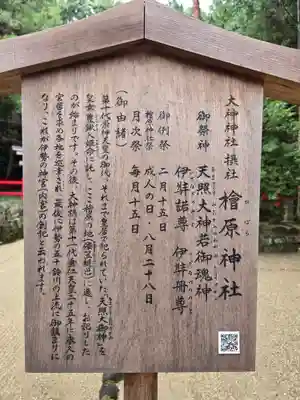 大神神社 摂社 檜原神社
ひばら
御祭神 天照大神若御魂神
伊弉諾尊 伊弉册尊
御例祭 二月十五日
檜原神社祭 成人の日、八月二十八日
月次祭 毎月十五日
(御由緒)
第十代崇神天皇の御代、それまで皇居で祀られていた「天照大御神」を
皇女豊鍬入姫命に託し、ここ檜原の地(倭笠縫邑)に遷しお祀りした
のが始まりです。その後、大神様は第十一代垂仁天皇二十五年に永久の
宮居を求め各地を巡幸され、最後に伊勢の五十鈴川の上流に御鎮まりに
なり、これが伊勢の神宮(内宮)の創祀と云われます。